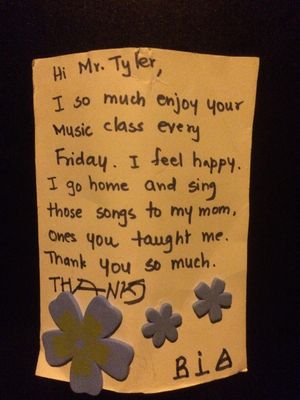 Hi Mr. Tyler,
I so much enjoy your
Music class every
Friday. I feel happy.
I go home and sing
those songs to my mom,
ones you taught me.
Thank you so much.
THANKS
BiA